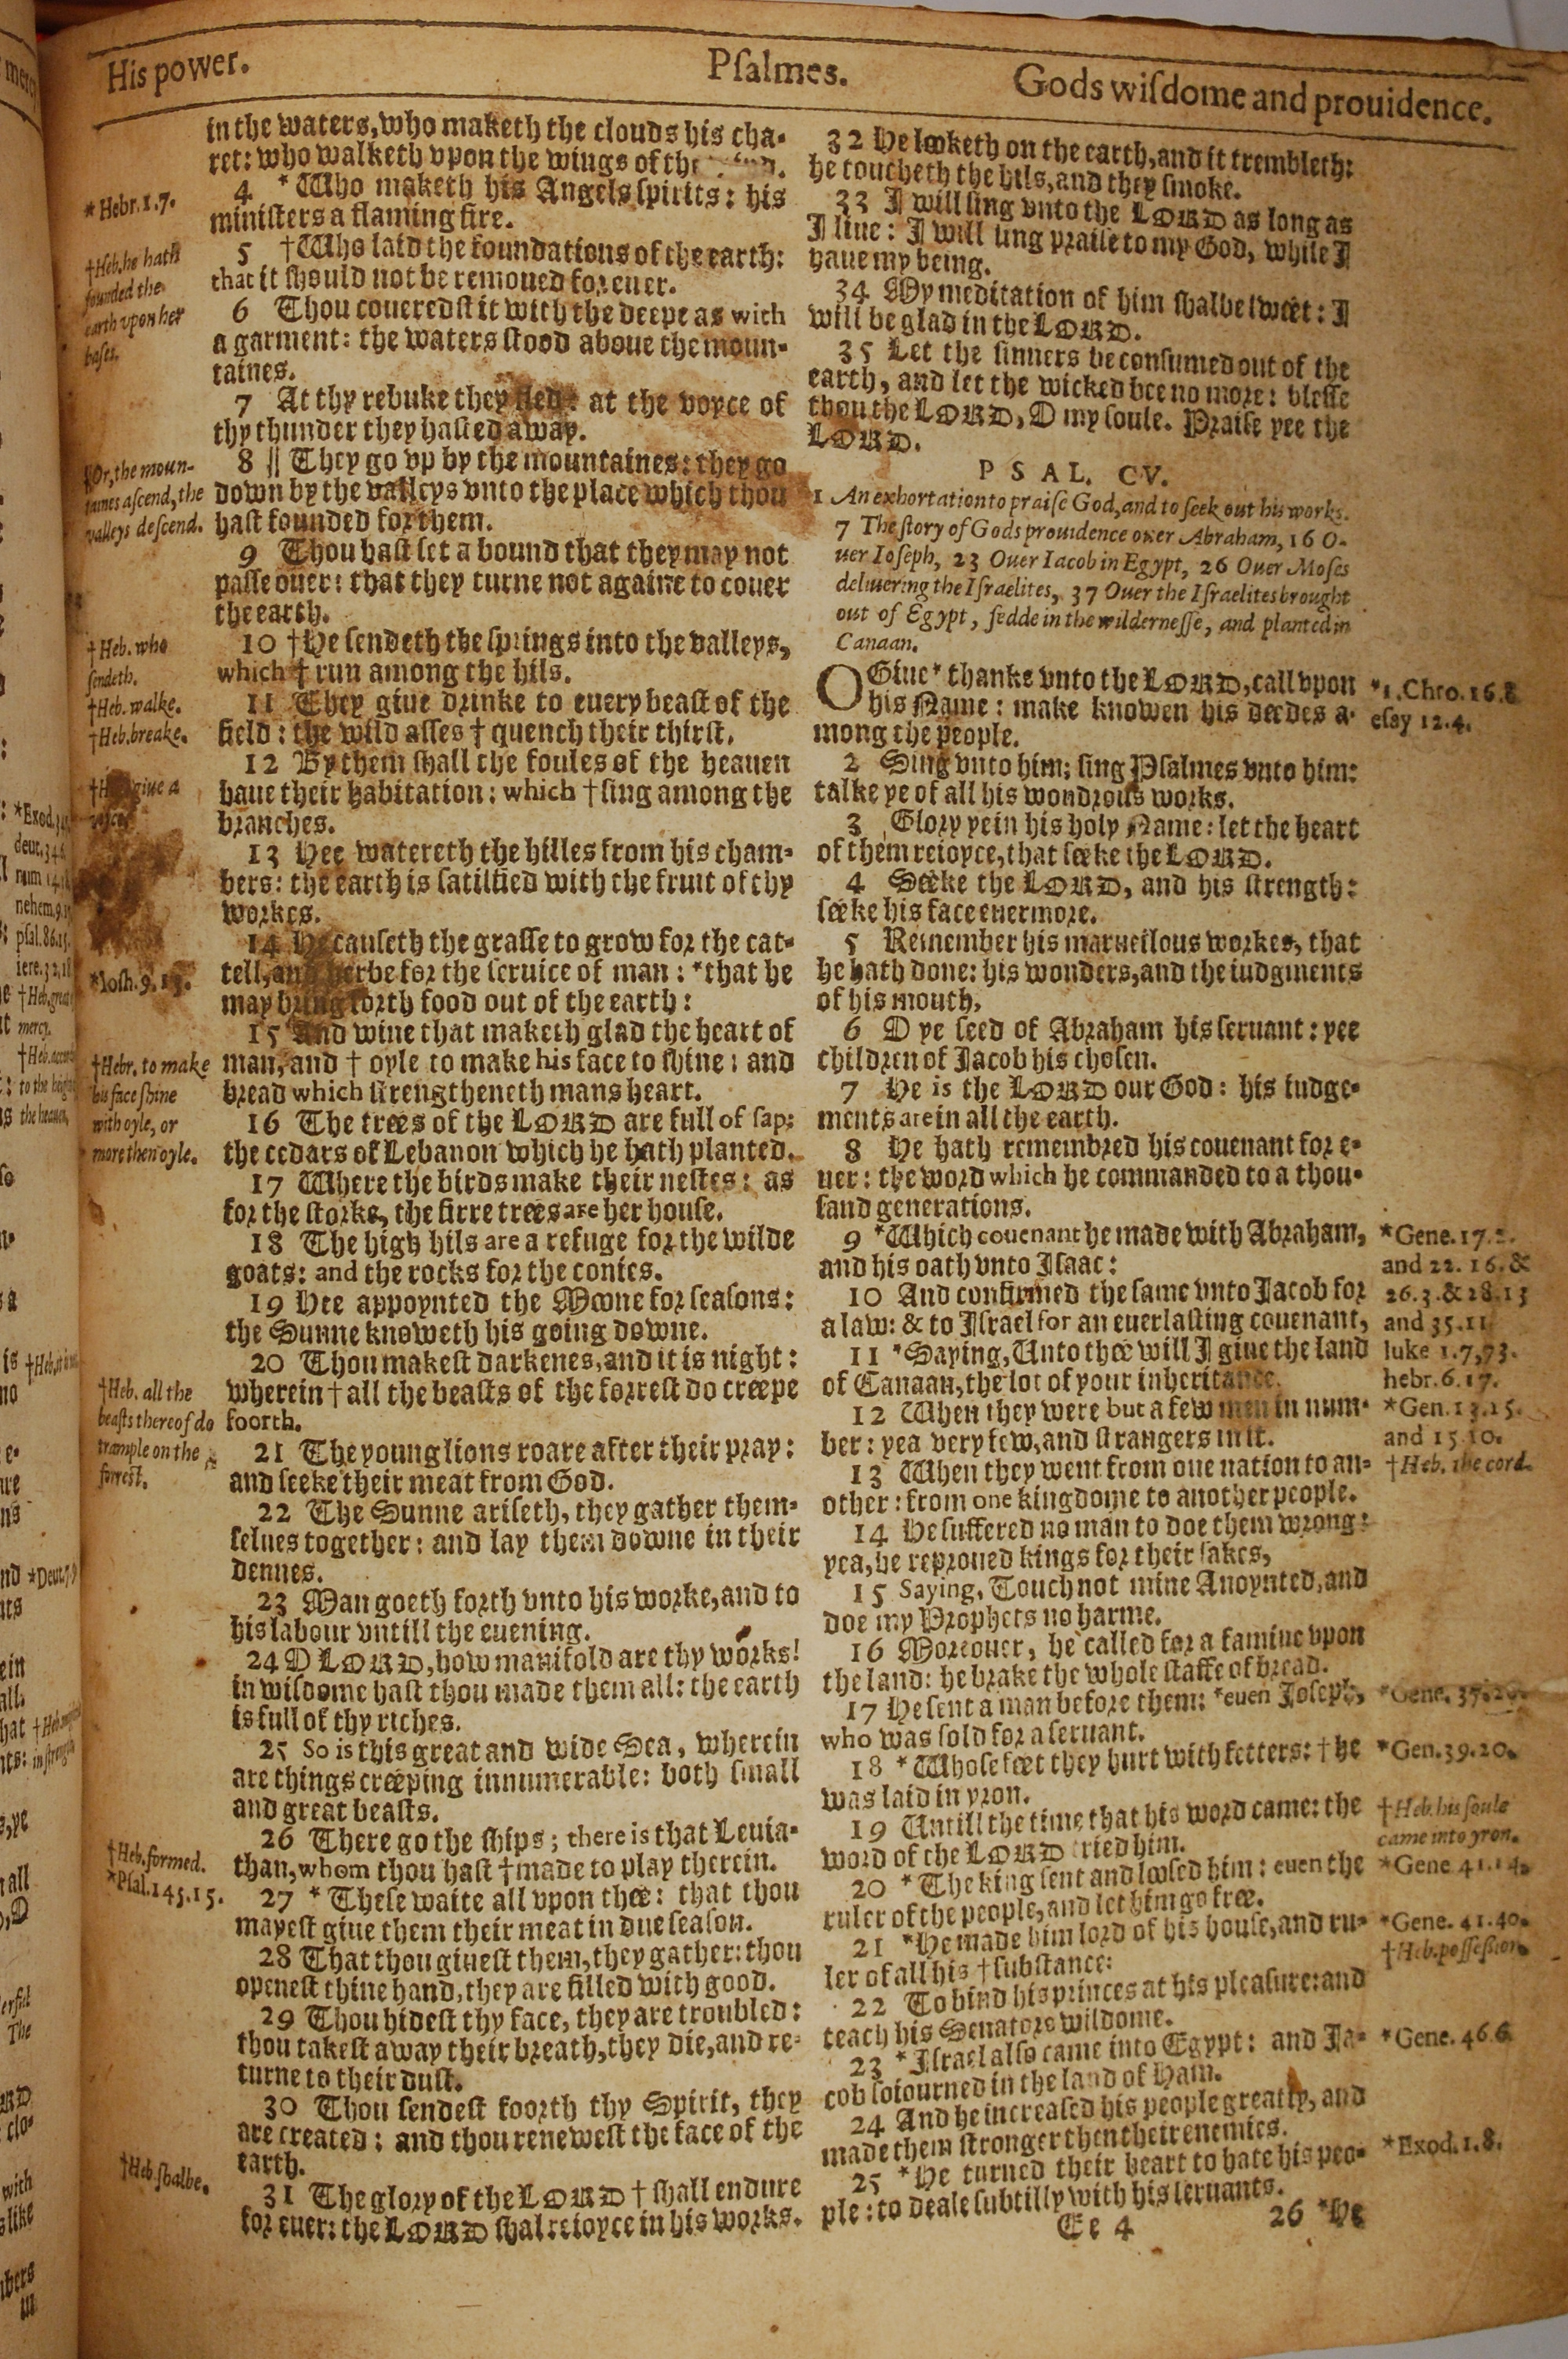 His power.
Pſalmes.
Gods wiſdome and prouidence.
in the waters, who maketh the clouds his cha-
ret: who walketh vpon the wings of the
4 *Who maketh his Angels ſpirits: his
miniſters a flaming fire.
5 †Who laid the foundations of the earth:
that it ſhould not be remoued for euer.
6 Thou coueredſt it with the deepe as with
a garment: the waters ſtood aboue the moun-
taines.
7 At thy rebuke they fled: at the voyce of
thy thunder they haſted away.
8 || They go vp by the mountaines: they go
down by the valleys vnto the place which thou
haſt founded for them.
9 Thou haſt ſet a bound that they may not
paſſe ouer: that they turne not againe to couer
the earth.
10 †He ſendeth the ſprings into the valleys,
which † run among the hils.
11 They giue drinke to euery beaſt of the
field: the wild aſſes † quench their thirſt.
12 By them ſhall the foules of the heauen
haue their habitation: which †ſing among the
branches.
13 Hee watereth the hilles from his cham-
bers: the earth is ſatiſfied with the fruit of thy
workes.
14 He cauſeth the graſſe to grow for the cat-
tell, and herbe for the ſeruice of man: *that he
may bring forth food out of the earth:
15 And wine that maketh glad the heart of
man, and † oyle to make his face to ſhine: and
bread which ſtrengtheneth mans heart.
16 The trees of the LORD are full of ſap:
the cedars of Lebanon which he hath planted.
17 Where the birds make their neſtes: as
for the ſtorke, the firre trees are her houſe.
18 The high hils are a refuge for the wilde
goats: and the rocks for the conies.
19 Hee appoynted the Moone for ſeaſons:
the Sunne knoweth his going downe.
20 Thou makeſt darkenes, and it is night:
wherein †all the beaſts of the forreſt do creepe
foorth.
21 The young lions roare after their pray:
and ſeeke their meat from God.
22 The Sunne ariſeth, they gather them-
ſelues together: and lay them downe in their
dennes.
23 Man goeth forth vnto his worke, and to
his labour vntill the euening.
24 O LORD, how manifold are thy works!
in wiſdome haſt thou made them all: the earth
is full of thy riches.
25 So is this great and wide Sea, wherein
are things creeping innumerable: both ſmall
and great beaſts.
26 There go the ſhips; there is that Leuia-
than, whom thou haſt †made to play therein.
27 * Theſe waite all vpon thee: that thou
mayeſt giue them their meat in due ſeaſon.
28 That thou giueſt them, they gather: thou
openeſt thine hand, they are filled with good.
29 Thou hideſt thy face, they are troubled:
thou takeſt away their breath, they die, and re-
turne to their duſt.
30 Thou ſendeſt foorth thy Spirit, they
are created: and thou reneweſt the face of the
earth.
31 The glory of the LORD † ſhall endure
for euer: the LORD ſhal reioyce in his works.
*Hebr. 1.7.
†Heb. he hath
founded the
earth vpon her
baſes.
||Or, the moun-
taines aſcend, the
valleys deſcend.
†Heb. who
ſendeth.
†Heb. walke.
†Heb. breake.
giue a
*Ioſh. 9.13.
†Hebr. to make
his face ſhine
with oyle, or
more then oyle.
†Heb. all the
beaſts thereof do
trample on the
forreſt.
†Heb. formed.
*Pſal. 145.15.
†Heb. ſhalbe.
32 He looketh on the earth, and it trembleth:
he toucheth the hils, and they ſmoke.
33 I will ſing vnto the LORD as long as
I liue: I will ſing praiſe to my God, while I
haue my being.
34 My meditation of him ſhalbe ſweet: I
will be glad in the LORD.
35 Let the ſinners be conſumed out of the
earth, and let the wicked bee no more: bleſſe
thou the LORD, O my ſoule. Praiſe yee the
LORD.
PSAL. CV.
1 An exhortation to praiſe God, and to ſeek out his works.
7 The ſtory of Gods prouidence ouer Abraham, 16 O-
uer Ioſeph, 23 Ouer Iacob in Egypt, 26 Ouer Moſes
deliuering the Iſraelites, 37 Ouer the Iſraelites brought
out of Egypt, fedde in the wilderneſſe, and planted in
Canaan.
O Giue* thanks vnto the LORD, call vpon
his Name: make knowen his deedes a-
mong the people.
2 Sing vnto him; ſing Pſalmes vnto him:
talke ye of all his wondrous works.
3 Glory ye in his holy Name: let the heart
of them reioyce, that ſeeke the LORD.
4 Seeke the LORD, and his ſtrength:
ſeeke his face euermore.
5 Remember his marueilous workes, that
he hath done: his wonders, and the iudgments
of his mouth,
6 O ye ſeed of Abraham his ſeruant: yee
children of Jacob his choſen.
7 He is the LORD our God: his iudge-
ments are in all the earth.
8 He hath remembred his couenant for e-
uer: the word which he commanded to a thou-
ſand generations.
9 *Which couenant he made with Abraham,
and his oath vnto Iſaac:
10 And confirmed the ſame vnto Jacob for
a law: & to Iſrael for an euerlaſting couenant,
11 *Saying, Unto thee will I giue the land
of Canaan, the lot of your inheritance.
12 When they were but a few men in num-
ber: yea very few, and ſtrangers in it.
13 When they went from one nation to an-
other: from one kingdome to another people.
14 He ſuffered no man to doe them wrong:
yea, he reproued kings for their ſakes,
15 Saying, Touch not mine Anoynted, and
doe my Prophets no harme.
16 Moreouer, he called for a famine vpon
the land: he brake the whole ſtaffe of bread.
17 He ſent a man before them: *euen Joſeph,
who was ſold for a ſeruant.
18 *Whoſe feet they hurt with fetters: †he
was laid in yron.
19 Untill the time that his word came: the
word of the LORD tried him.
20 *The king ſent and looſed him: euen the
ruler of the people, and let him go free.
21 *He made him lord of his houſe, and ru-
ler of all his †ſubſtance:
22 To bind his princes at his pleaſure: and
teach his Senators wiſdome.
23 *Iſrael alſo came into Egypt: and Ja-
cob ſoiourned in the land of Ham.
24 And he increaſed his people greatly, and
made them ſtronger then their enemies.
25 *He turned their heart to hate his peo-
ple: to deale ſubtilly with his ſeruants.
Ee 4
26 *He
*1. Chro. 16.8
eſay 12.4.
*Gene. 17.2.
and 22. 16. &
26.3. & 28.13
and 35.11.
luke 1.7,73.
hebr. 6.17.
*Gen. 13.15.
and 15.10.
†Heb. the cord.
*Gene. 37.
*Gen. 39.20.
†Heb. his ſoule
came into yron.
*Gene 41.14.
*Gene. 41.40.
†Heb. poſſeſsion.
*Gene. 46.6
*Exod. 1.8.